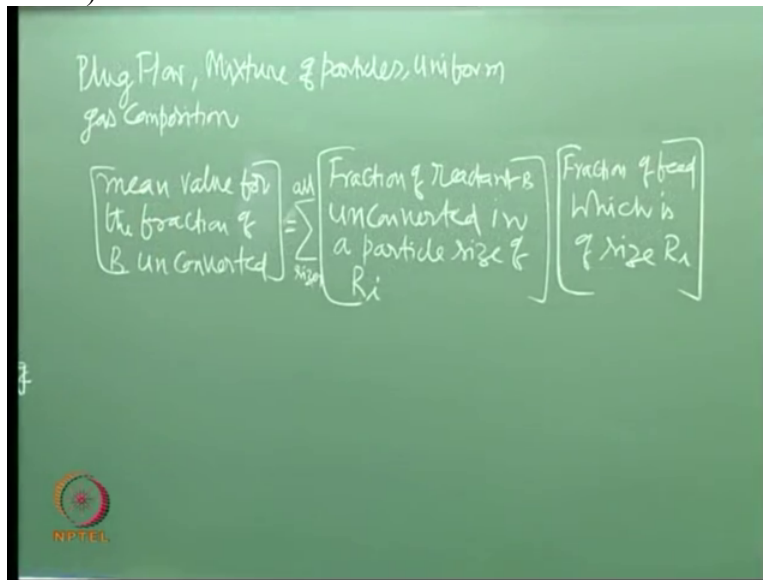 Plug Flow, Mixture of particles, Uniform
gas Composition
[mean value for the fraction of B unconverted] = all ∑ sizes [Fraction of reactant B unconverted in a particle size of Ri] [Fraction of feed which is of size Ri]
NPTEL